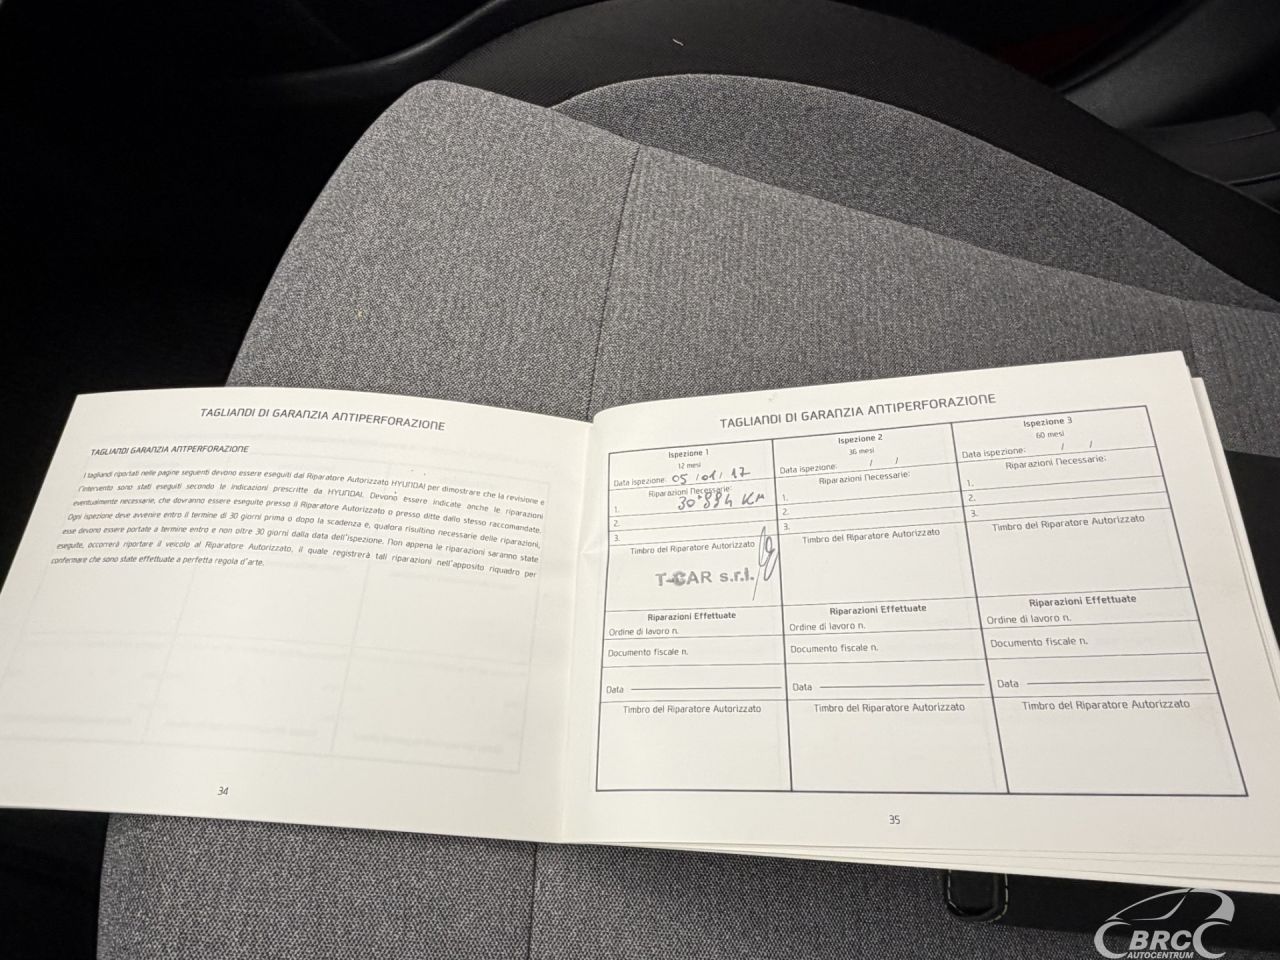 TAGLIANDI DI GARANZIA ANTIPERFORAZIONE
TAGLIANDI GARANZIA ANTPERFORAZIONE
I tagliandi riportati nelle pagine seguenti devono essere eseguiti dal Riparatore Autorizzato HYUNDAI per dimostrare che la revisione e
l'intervento sono stati eseguiti secondo le indicazioni prescritte da HYUNDAI. Devono essere indicate anche le riparazioni
eventualmente necessarie, che dovranno essere eseguite presso il Riparatore Autorizzato o presso ditte dallo stesso raccomandate.
Ogni ispezione deve avvenire entro il termine di 30 giorni prima o dopo la scadenza e, qualora risultino necessarie delle riparazioni,
esse devono essere portate a termine entro e non oltre 30 giorni dalla data dell'ispezione. Non appena le riparazioni saranno state
eseguite, occorrerà riportare il veicolo al Riparatore Autorizzato, il quale registrerà tali riparazioni nell'apposito riquadro per
confermare che sono state effettuate a perfetta regola d'arte.
34
TAGLIANDI DI GARANZIA ANTIPERFORAZIONE
Ispezione 1
12 mesi
Data ispezione: 05 / 01 / 17
Riparazioni Necessarie:
30.884 KM
1.
2.
3.
Timbro del Riparatore Autorizzato
T-CAR s.r.l.
Riparazioni Effettuate
Ordine di lavoro n.
Documento fiscale n.
Data
Timbro del Riparatore Autorizzato
Ispezione 2
36 mesi
Data ispezione: / /
Riparazioni Necessarie:
1.
2.
3.
Timbro del Riparatore Autorizzato
Riparazioni Effettuate
Ordine di lavoro n.
Documento fiscale n.
Data
Timbro del Riparatore Autorizzato
Ispezione 3
60 mesi
Data ispezione: / /
Riparazioni Necessarie:
1.
2.
3.
Timbro del Riparatore Autorizzato
Riparazioni Effettuate
Ordine di lavoro n.
Documento fiscale n.
Data
Timbro del Riparatore Autorizzato
35
BRC
AUTOCENTRUM